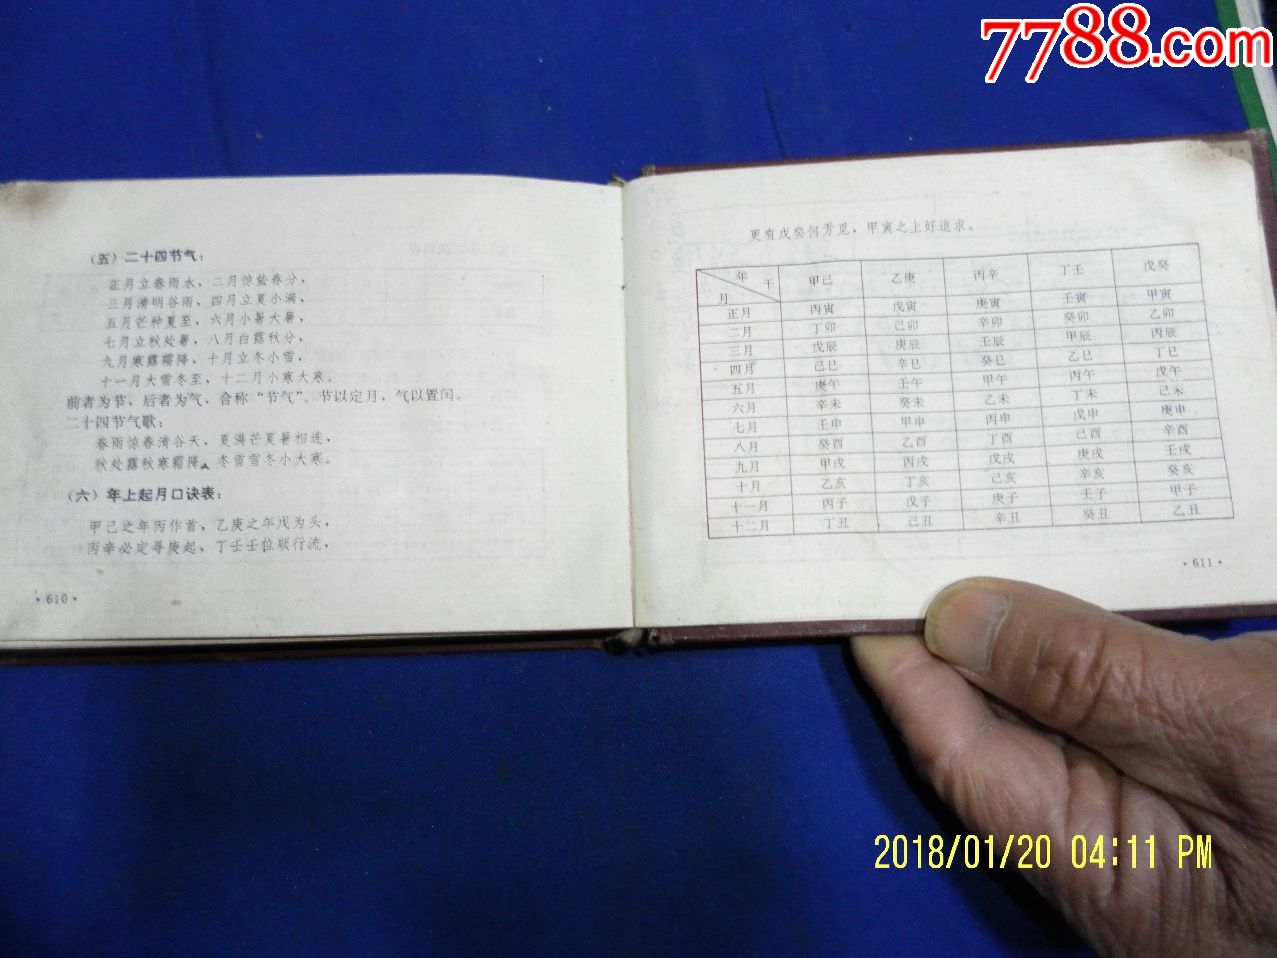 7788.com
（五）二十四节气：
正月立春雨水，二月惊蛰春分，
三月清明谷雨，四月立夏小满，
五月芒种夏至，六月小暑大暑，
七月立秋处暑，八月白露秋分，
九月寒露霜降，十月立冬小雪，
十一月大雪冬至，十二月小寒大寒。
前者为节，后者为气，合称“节气”，节以定月，气以置闰。
二十四节气歌：
春雨惊春清谷天，夏满芒夏暑相连，
秋处露秋寒霜降，冬雪雪冬小大寒。
（六）年上起月口诀表：
甲己之年丙作首，乙庚之年戊为头，
丙辛必定寻庚起，丁壬壬位顺行流，
·610·
更有戊癸何方觅，甲寅之上好追求。
年 干 月 甲己 乙庚 丙辛 丁壬 戊癸
正月 丙寅 戊寅 庚寅 壬寅 甲寅
二月 丁卯 己卯 辛卯 癸卯 乙卯
三月 戊辰 庚辰 壬辰 甲辰 丙辰
四月 己巳 辛巳 癸巳 乙巳 丁巳
五月 庚午 壬午 甲午 丙午 戊午
六月 辛未 癸未 乙未 丁未 己未
七月 壬申 甲申 丙申 戊申 庚申
八月 癸酉 乙酉 丁酉 己酉 辛酉
九月 甲戌 丙戌 戊戌 庚戌 壬戌
十月 乙亥 丁亥 己亥 辛亥 癸亥
十一月 丙子 戊子 庚子 壬子 甲子
十二月 丁丑 己丑 辛丑 癸丑 乙丑
·611·
2018/01/20 04:11 PM